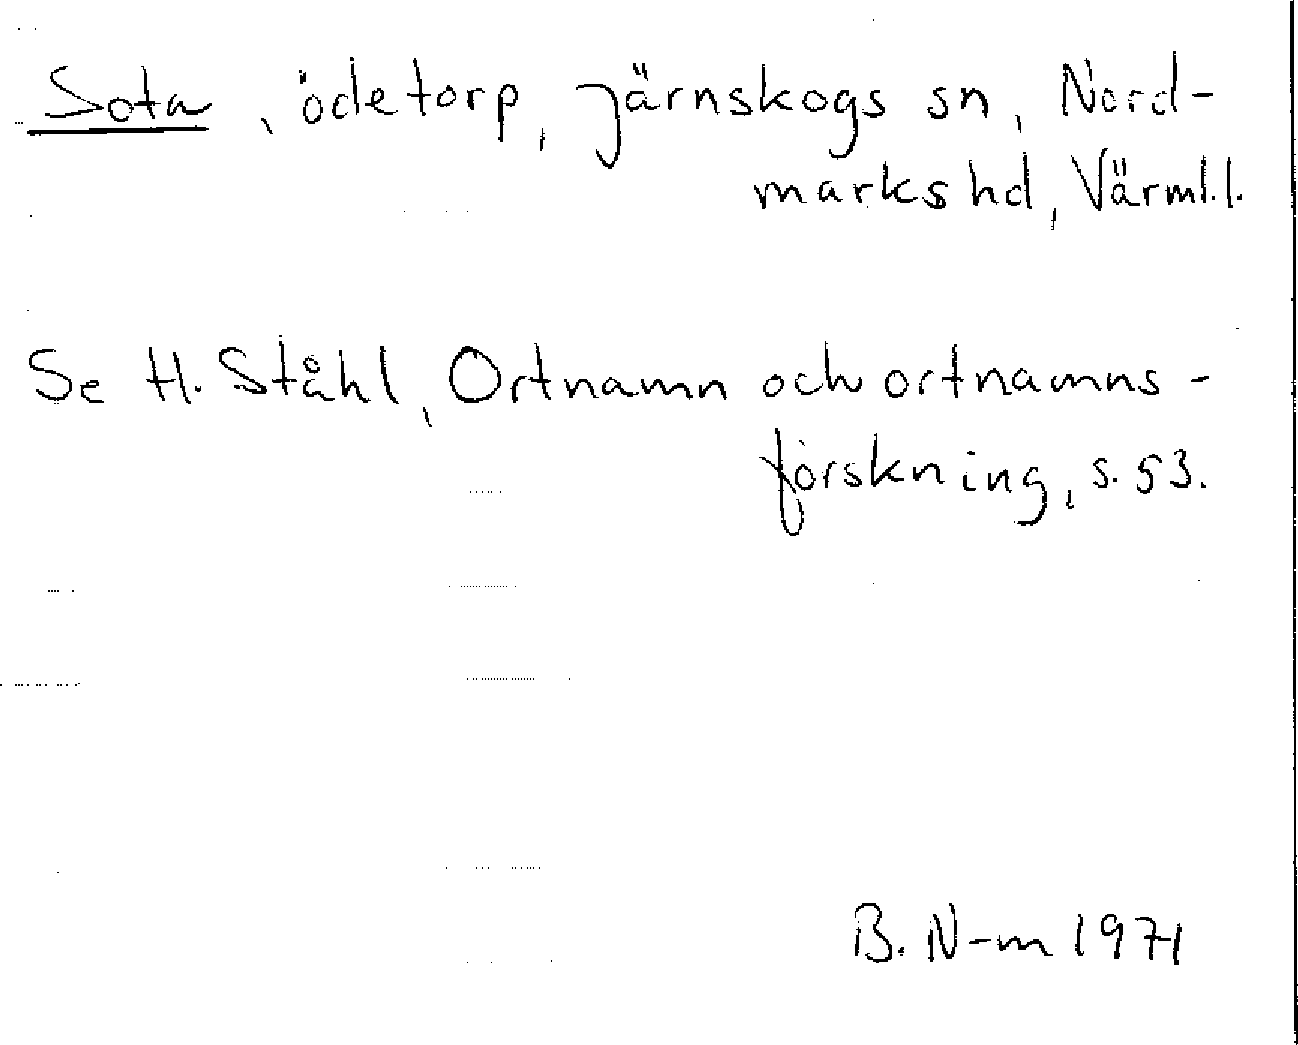 Sota, ödetorp, Järnskogs sn, Nord-
marks hd, Värml.l.
Se H. Ståhl, Ortnamn och ortnamns-
förskning, s. 53.
B. N-m 1971